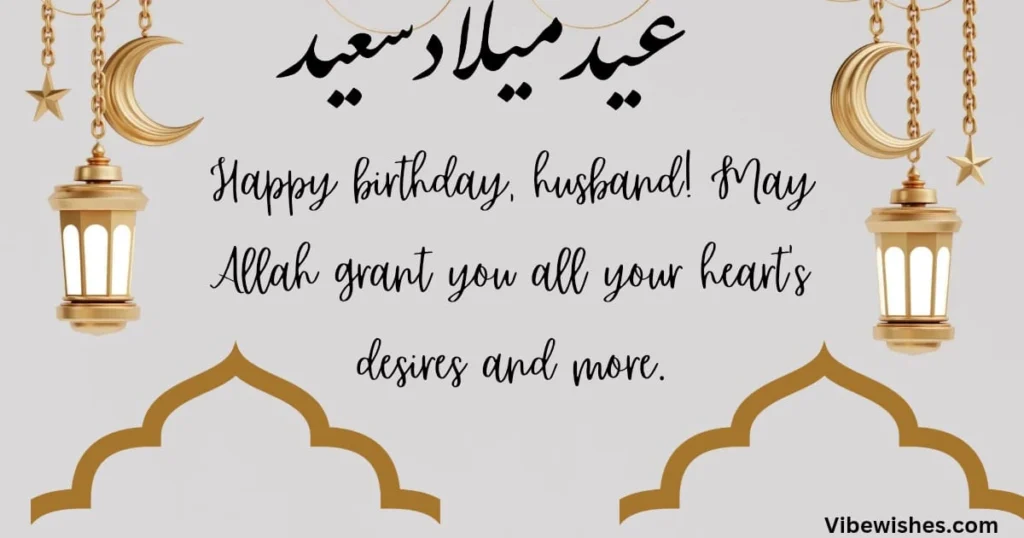 عيد ميلاد سعيد
Happy birthday, husband! May
Allah grant you all your heart's
desires and more.
Vibewishes.com